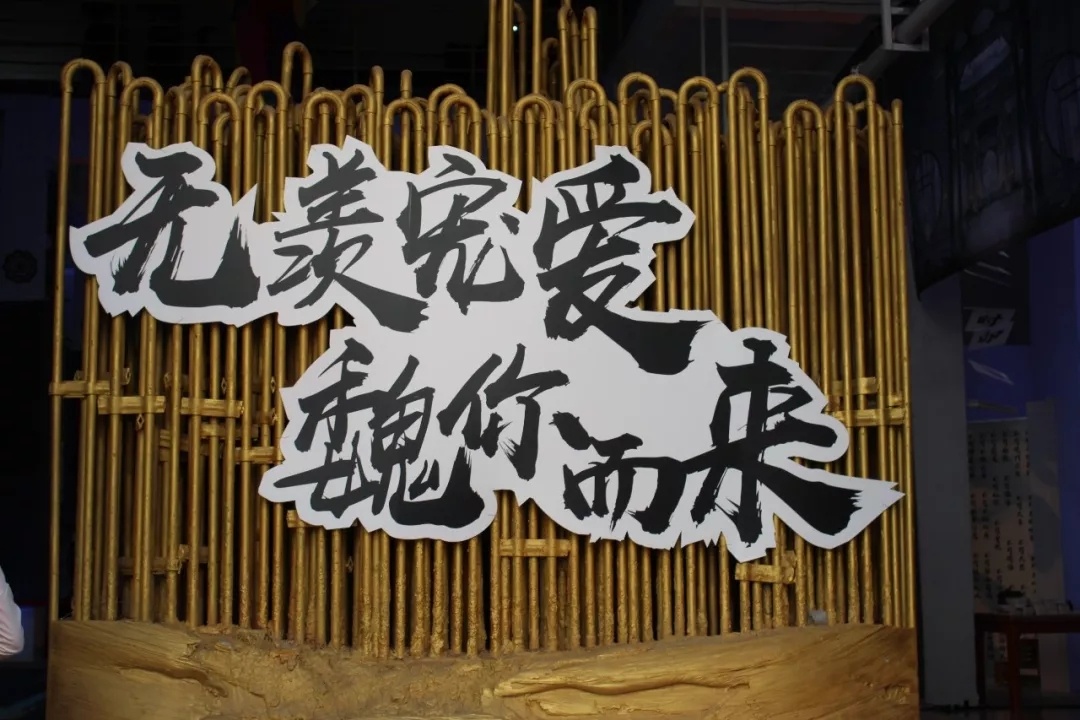 无羡宠爱
魏你而来